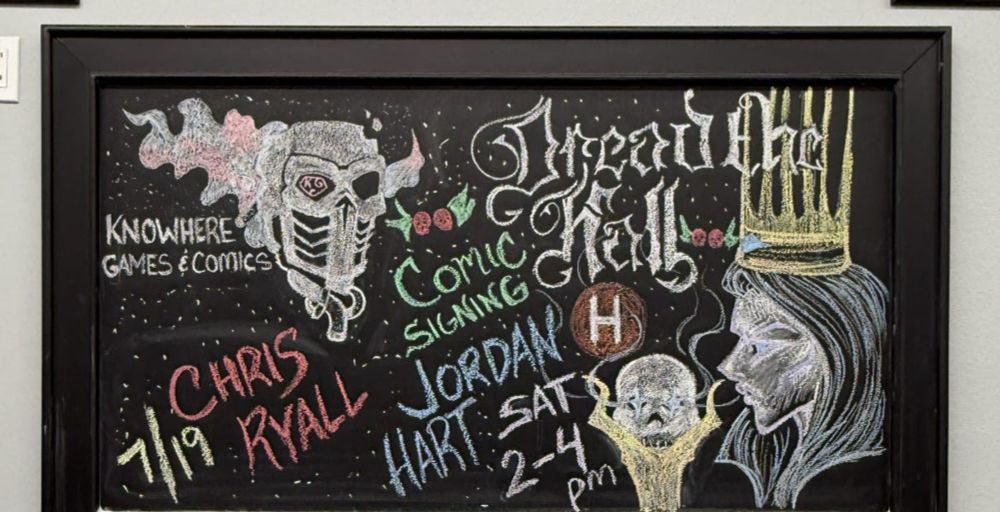 KG
KNOWHERE
GAMES & COMICS
Dread the
Hall
COMIC
SIGNING
H
CHRIS
RYALL
JORDAN
HART
7/19
SAT
2-4
pm